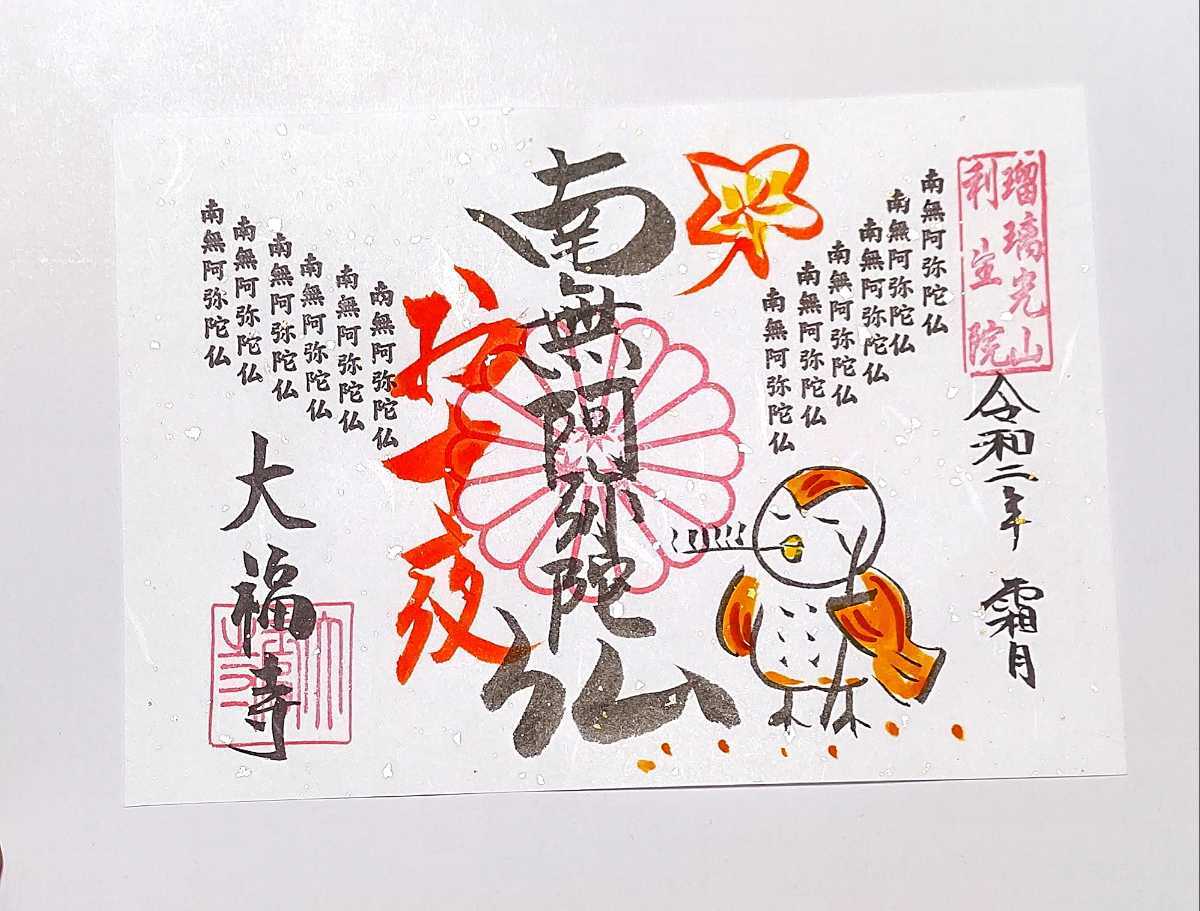 瑠璃光山
利生院
令和二年 霜月
南無阿弥陀仏
南無阿弥陀仏
南無阿弥陀仏
南無阿弥陀仏
南無阿弥陀仏
南無阿弥陀仏
南無阿弥陀仏
お十夜
南無阿弥陀仏
南無阿弥陀仏
南無阿弥陀仏
南無阿弥陀仏
南無阿弥陀仏
南無阿弥陀仏
大福寺